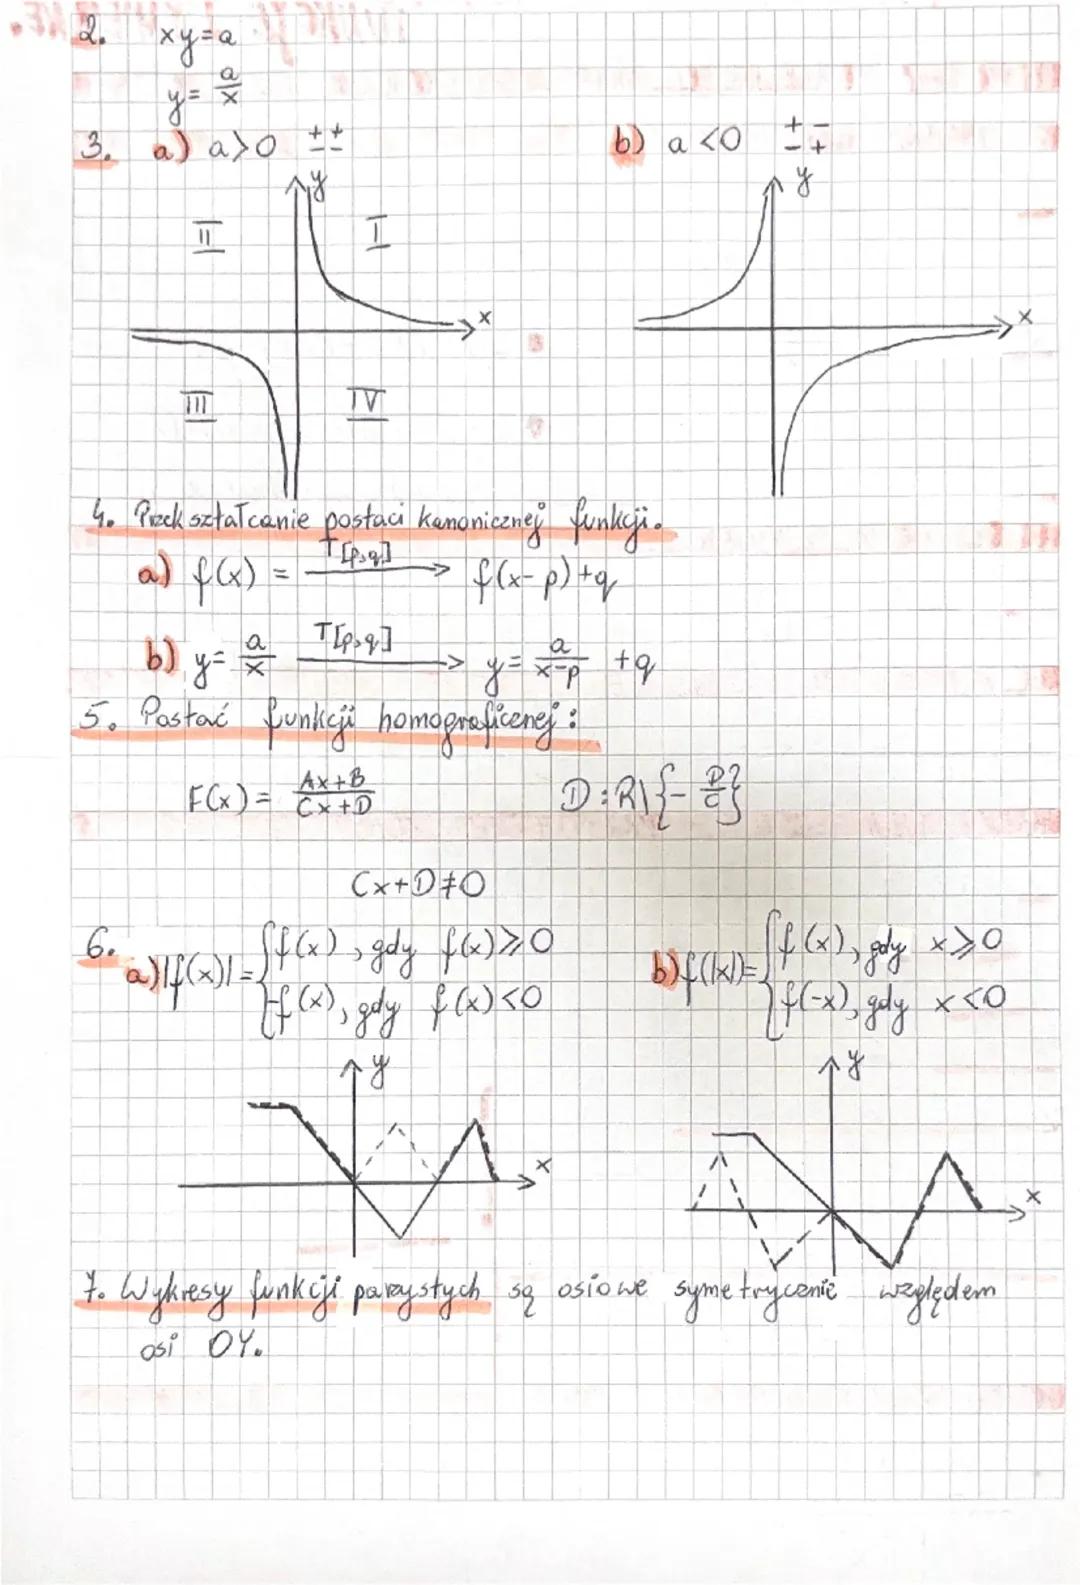 2. xy=a
y = a/x
3. a) a>0 + + - -
b) a<0 + - - +
y
II I
x
III IV
y
x
4. Przekształcanie postaci kanonicznej funkcji.
a) f(x) = T[p,q] → f(x-p)+q
b) y= a/x T[p,q] → y= a/x-p +q
5. Postać funkcji homograficznej:
F(x) = Ax+B/Cx+D D:R\{- D/C}
Cx+D≠0
6. a) |f(x)| = { f(x), gdy f(x)⩾0
-f(x), gdy f(x)<0
b) f(|x|)= { f(x), gdy x⩾0
f(-x), gdy x<0
y
x
y
x
7. Wykresy funkcji parzystych są osiowe symetrycznie względem
osi OY.